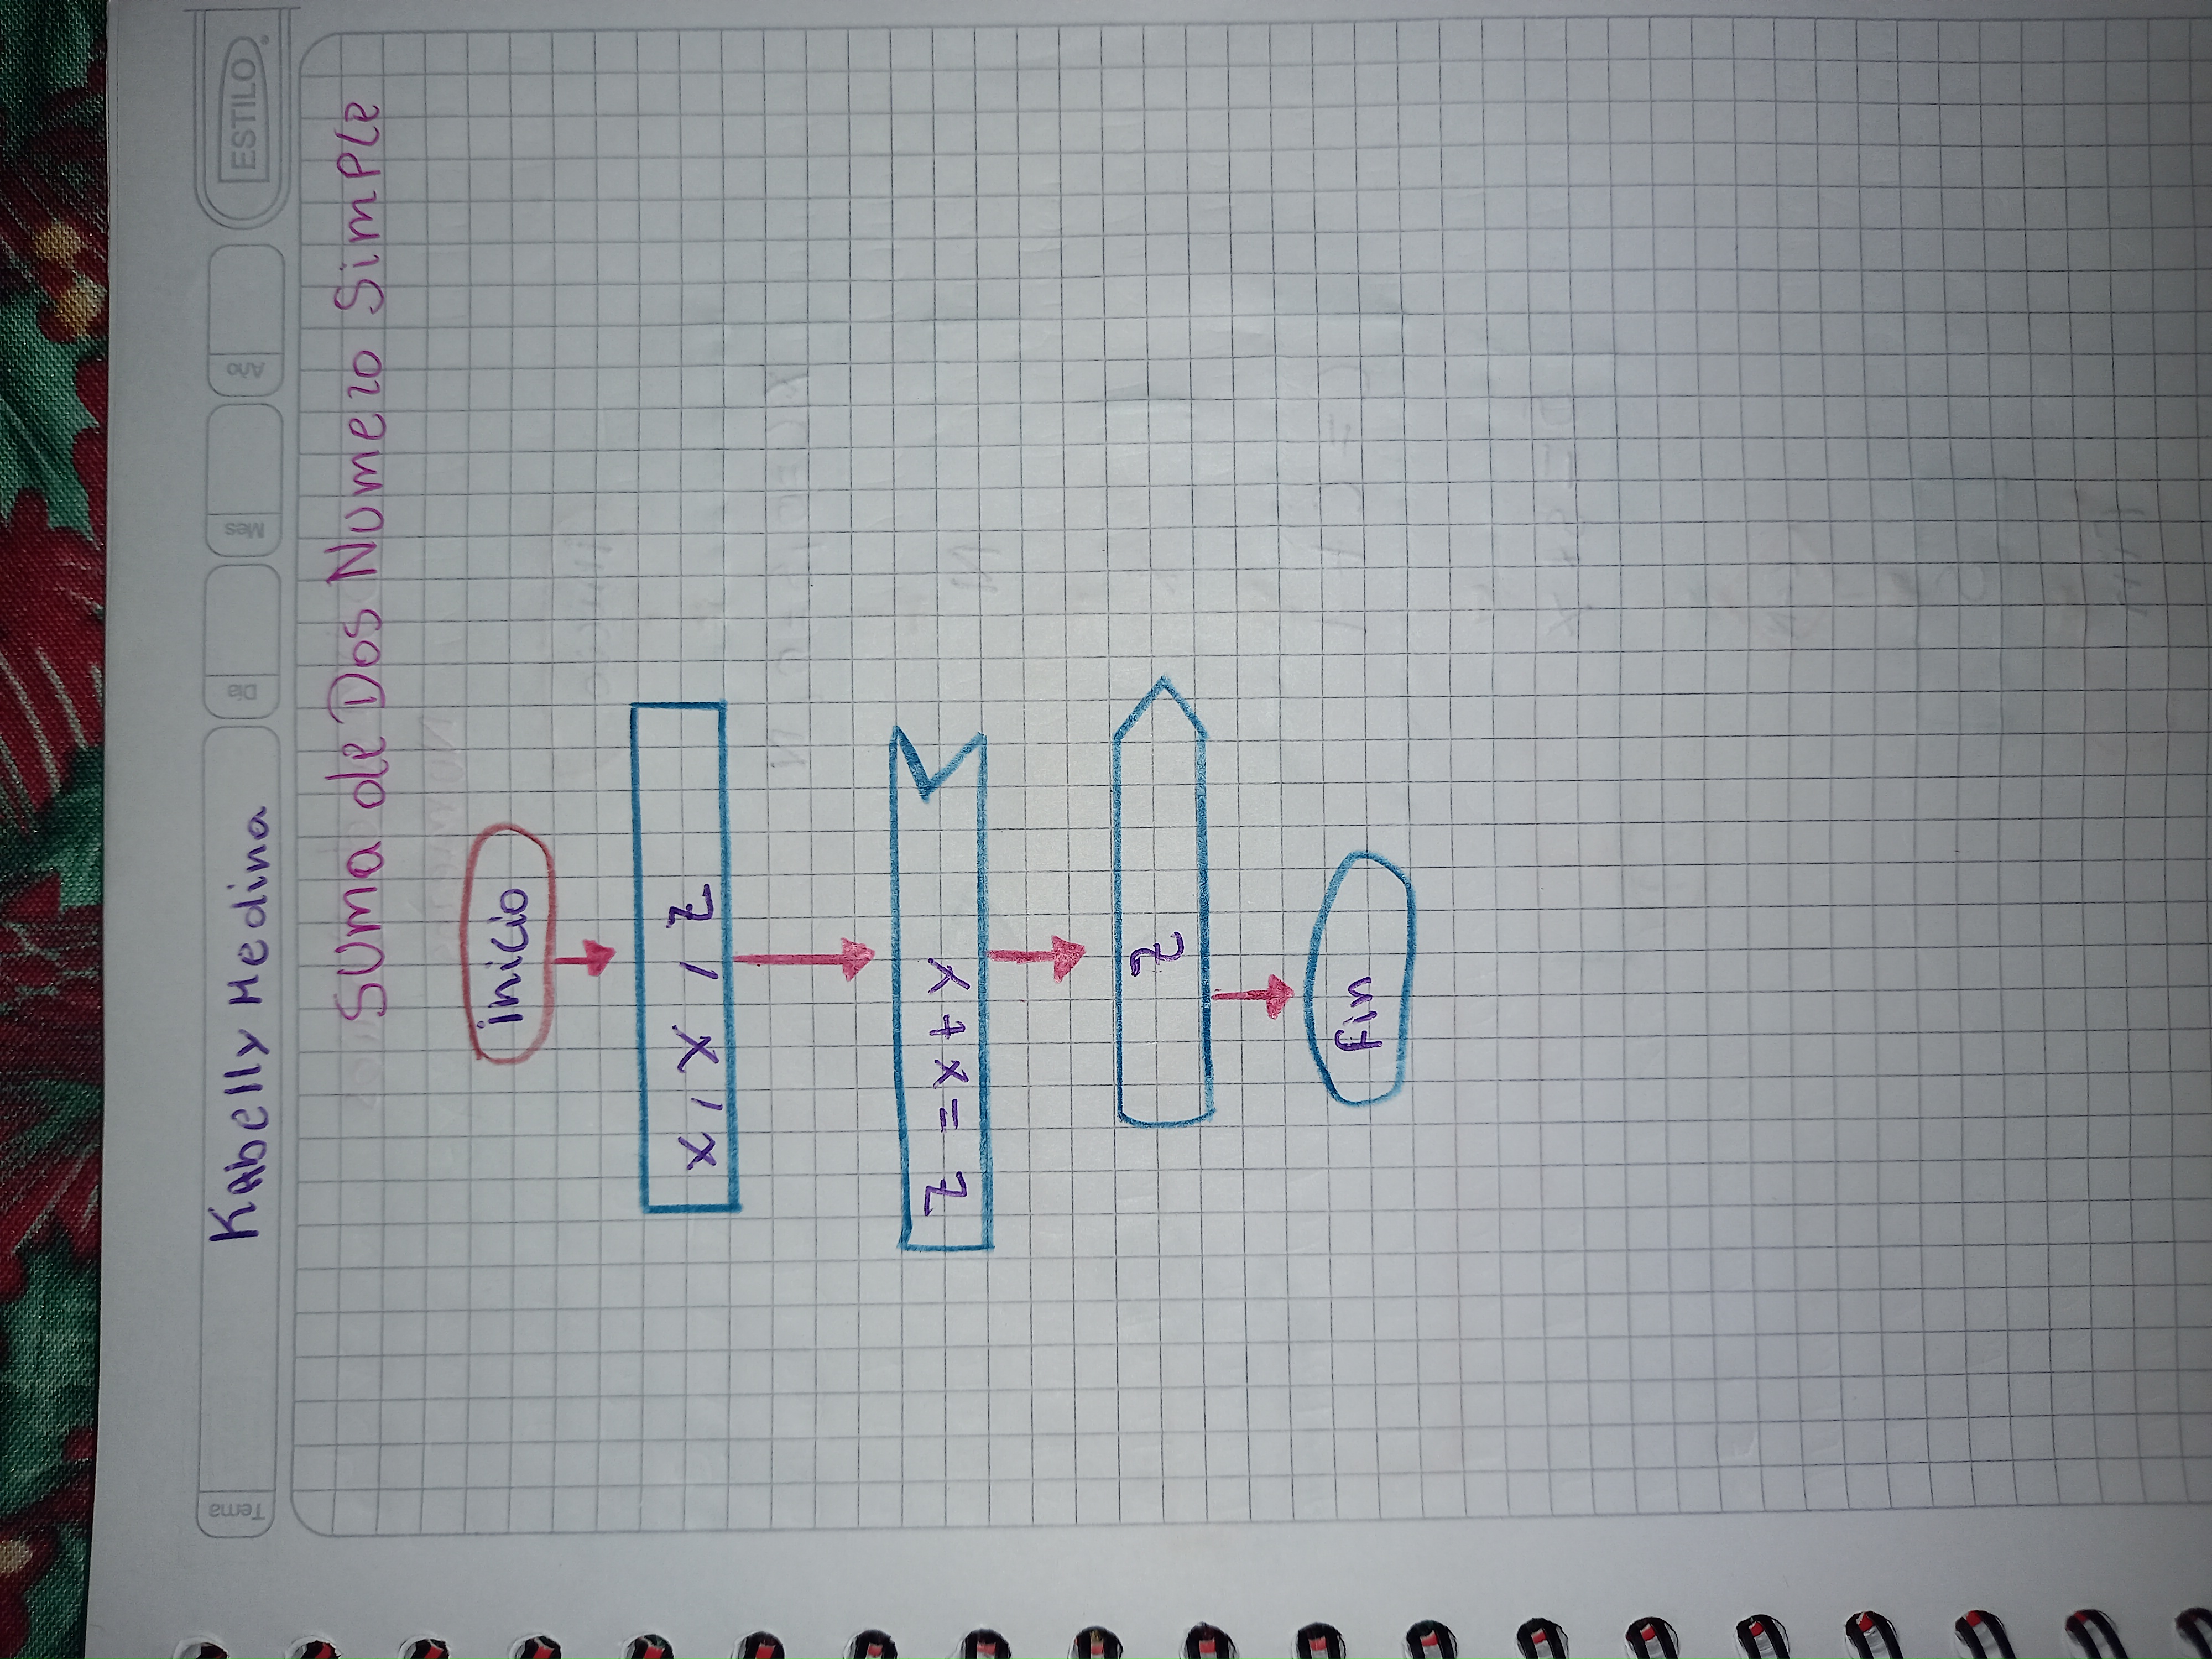 Tema
Kabelly Medina
Día
Mes
Año
ESTILO
Suma de Dos Numero Simple
inicio
x, x, z
z = x + y
z
fin